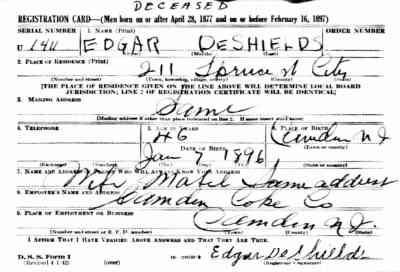 DECEASED
REGISTRATION CARD—(Men born on or after April 28, 1877 and on or before February 16, 1897)
SERIAL NUMBER 1. NAME (Print) ORDER NUMBER
U 140 EDGAR DESHIELDS
2. PLACE OF RESIDENCE (Print)
211 Spruce St City
(Number and street) (Town, township, village, or city) (County) (State)
[THE PLACE OF RESIDENCE GIVEN ON THE LINE ABOVE WILL DETERMINE LOCAL BOARD
JURISDICTION; LINE 2 OF REGISTRATION CERTIFICATE WILL BE IDENTICAL]
3. MAILING ADDRESS
Same
[Mailing address if other than place indicated on line 2. If same insert word same]
4. TELEPHONE 5. AGE IN YEARS 6. PLACE OF BIRTH
46 Camden NJ
DATE OF BIRTH (Town or county)
Jan 7 1896
(Exchange) (Number) (Mo.) (Day) (Yr.) (State or country)
7. NAME AND ADDRESS OF PERSON WHO WILL ALWAYS KNOW YOUR ADDRESS
Mrs Mabel Same address
8. EMPLOYER'S NAME AND ADDRESS
Camden Coke Co
9. PLACE OF EMPLOYMENT OR BUSINESS
Camden N.J.
(Number and street or R. F. D. number) (Town) (County) (State)
I AFFIRM THAT I HAVE VERIFIED ABOVE ANSWERS AND THAT THEY ARE TRUE.
D. S. S. Form 1 Edgar DeShields
(Revised 4-1-42)